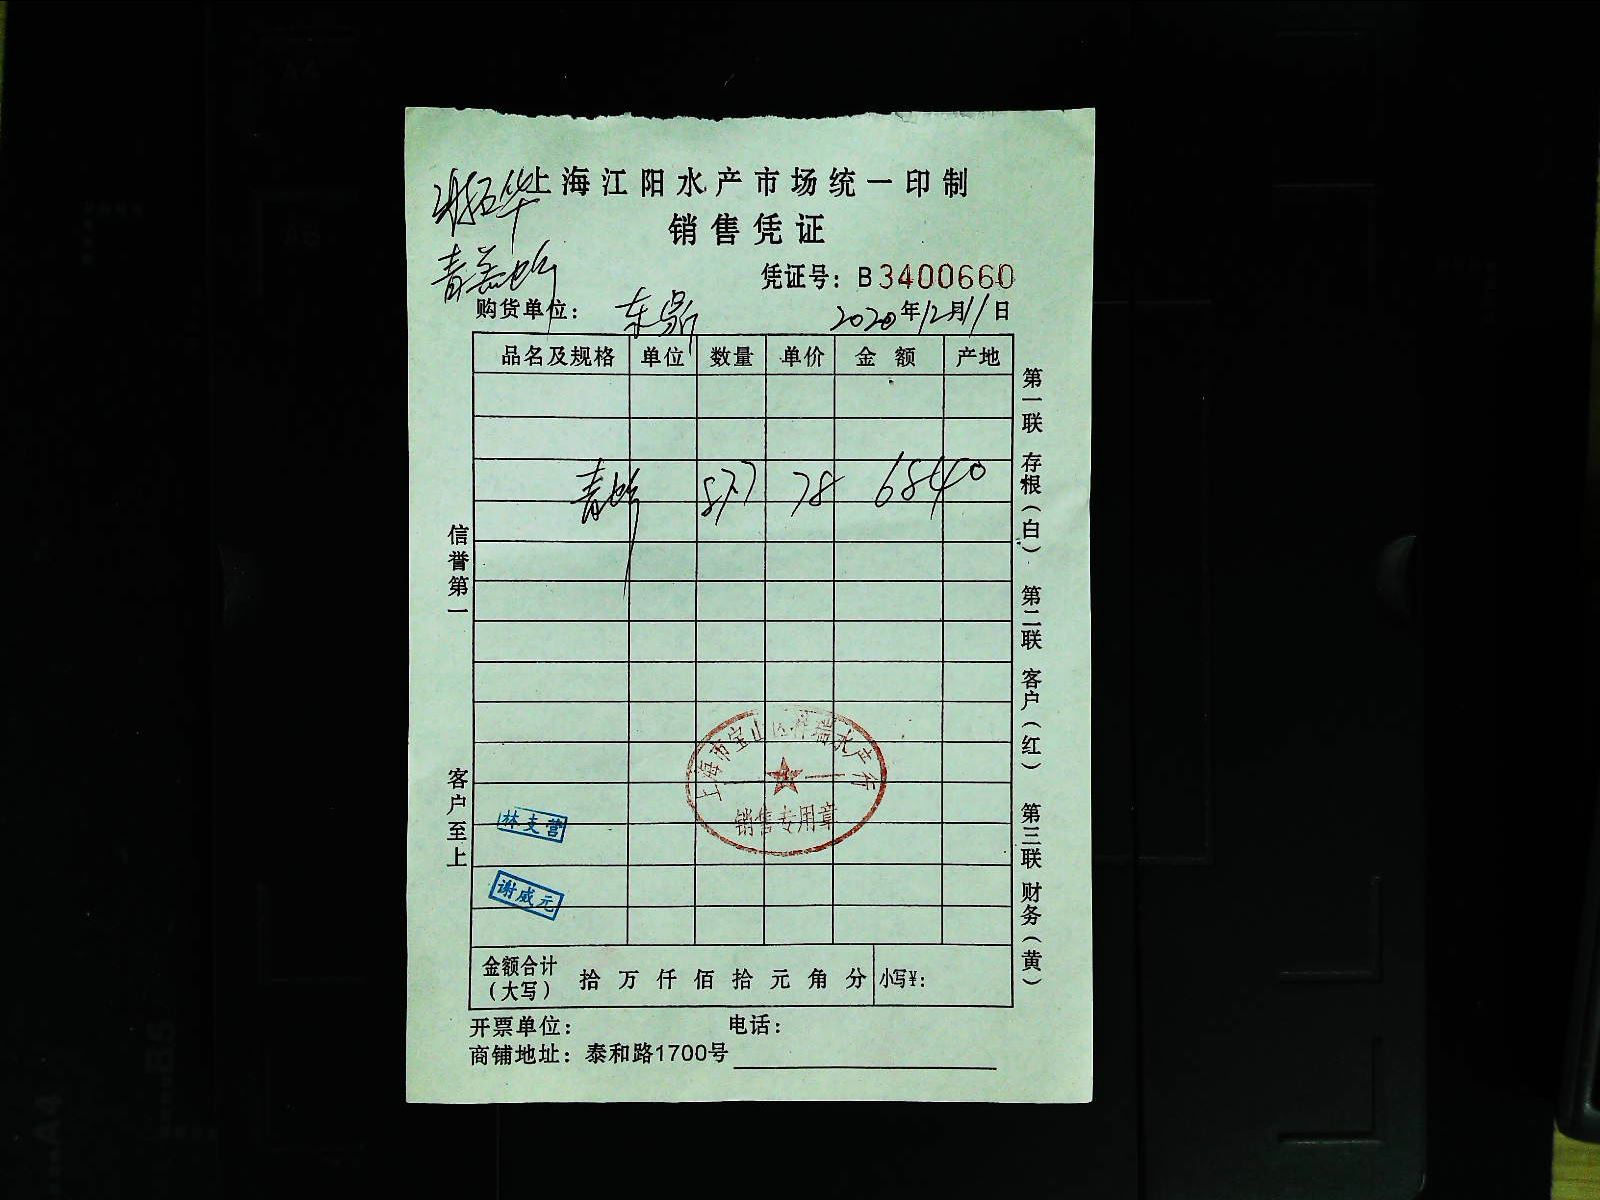 上海江阳水产市场统一印制
销售凭证
凭证号：B3400660
购货单位： 东 2020年12月11日
品名及规格 单位 数量 单价 金额 产地
青 87.7 78 6840
第一联 存根（白） 第二联 客户（红） 第三联 财务（黄）
信誉第一 客户至上
上海市宝山区祥瑞水产行
销售专用章
林支营
谢威元
金额合计（大写） 拾 万 仟 佰 拾 元 角 分 小写¥：
开票单位： 电话：
商铺地址：泰和路1700号